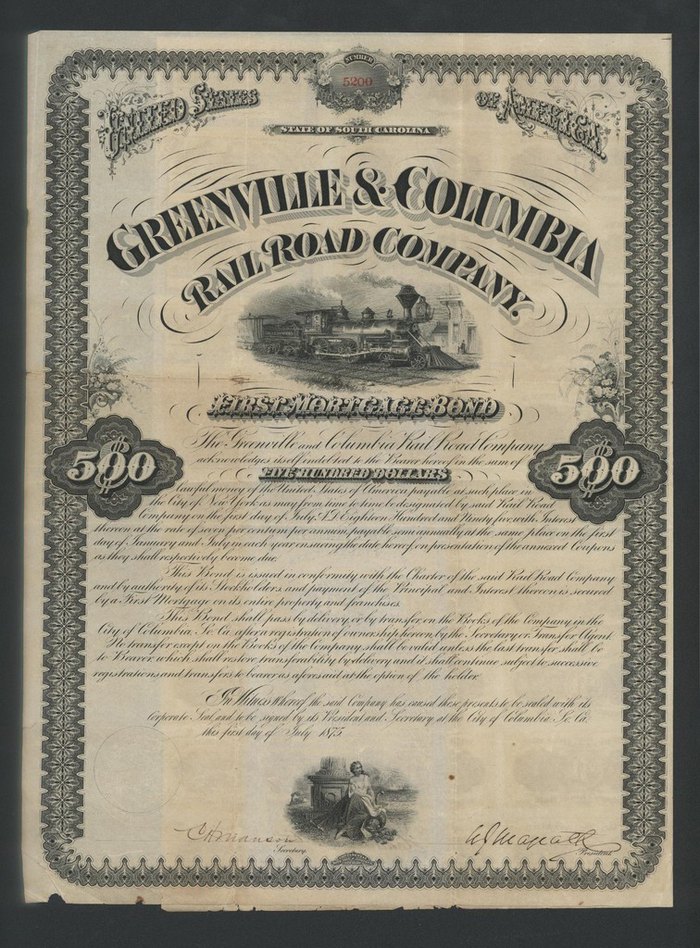 NUMBER
5200
UNITED STATES OF AMERICA
STATE OF SOUTH CAROLINA
GREENVILLE & COLUMBIA
RAIL ROAD COMPANY.
FIRST MORTGAGE BOND
The Greenville and Columbia Rail Road Company
acknowledges itself indebted to the Bearer hereof in the sum of
$500
FIVE HUNDRED DOLLARS
$500
Lawful money of the United States of America payable at such place in
the City of New York as may from time to time be designated by said Rail Road
Company on the first day of July A.D. Eighteen Hundred and Ninety five with Interest
thereon at the rate of seven per centum per annum, payable semi annually at the same place on the first
day of January and July in each year ensuing the date hereof on presentation of the annexed Coupons
as they shall respectively become due.
This Bond is issued in conformity with the Charter of the said Rail Road Company
and by authority of its Stockholders and payment of the Principal and Interest thereon is secured
by a First Mortgage on its entire property and franchises.
This Bond shall pass by delivery or by transfer on the Books of the Company in the
City of Columbia So. Ca. after a registration of ownership hereon by the Secretary or Transfer Agent
No transfer except on the Books of the Company shall be valid unless the last transfer shall be
to Bearer which shall restore transferability by delivery and it shall continue subject to successive
registrations and transfers to bearer as aforesaid at the option of the holder.
In Witness Whereof the said Company has caused these presents to be sealed with its
Corporate Seal and to be signed by its President and Secretary at the City of Columbia So. Ca.
this first day of July 1875
C H Manson
Secretary.
W J Magrath
President.